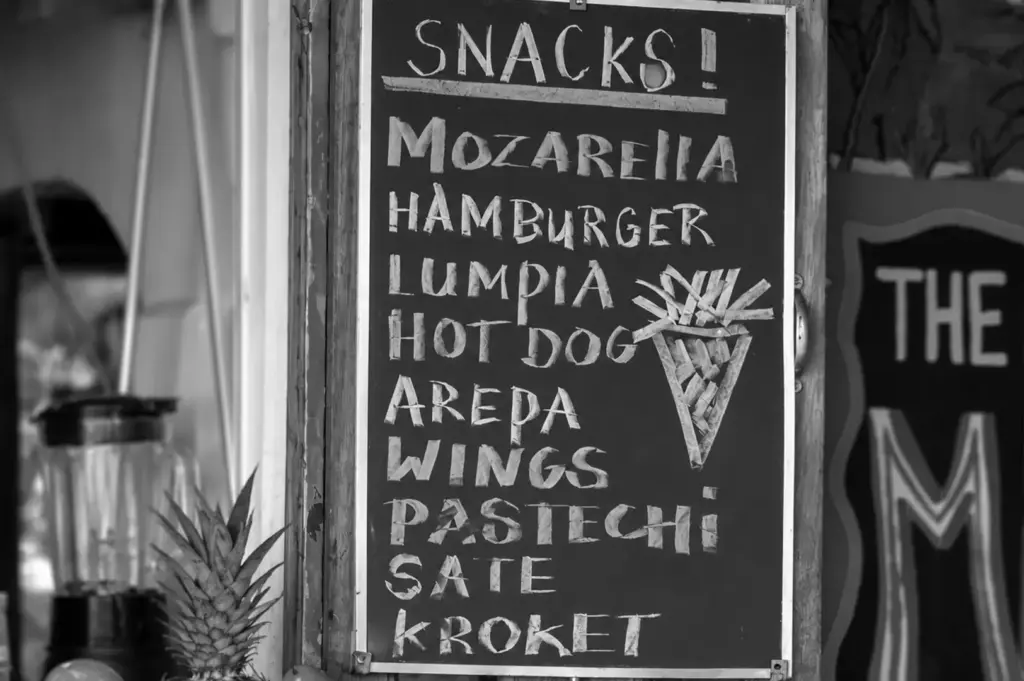 SNACKS!
MOZAREllA
HAMBURGER
LUMPIA
HOT DOG
AREPA
WINGS
PASTECHi
SATE
KROKET
THE
M